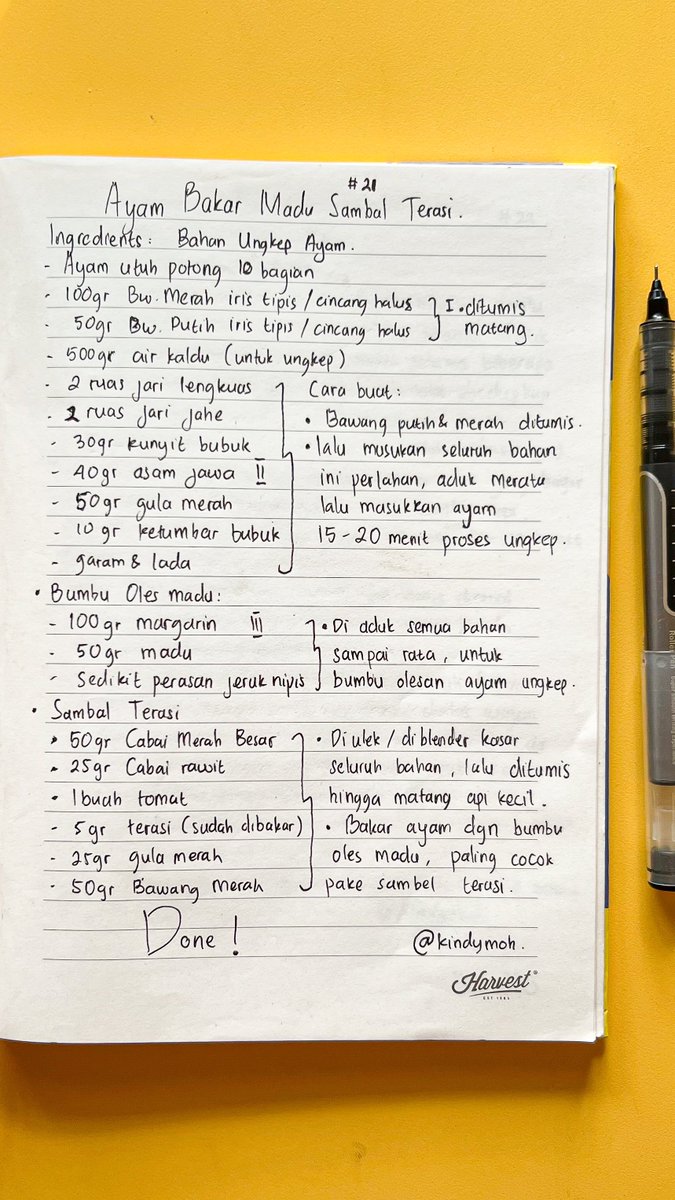 #21
Ayam Bakar Madu Sambal Terasi.
Ingredients: Bahan Ungkep Ayam.
- Ayam utuh potong 10 bagian
- 100gr Bw. Merah iris tipis / cincang halus
- 50gr Bw. Putih iris tipis / cincang halus
I. ditumis
matang.
- 500gr air kaldu (untuk ungkep)
- 2 ruas jari lengkuas
- 2 ruas jari jahe
- 30gr kunyit bubuk
- 40gr asam jawa II
- 50gr gula merah
- 10 gr ketumbar bubuk
- garam & lada
Cara buat:
• Bawang putih & merah ditumis.
• lalu musukan seluruh bahan
ini perlahan, aduk merata
lalu masukkan ayam
15-20 menit proses ungkep.
• Bumbu Oles madu:
- 100gr margarin III
- 50gr madu
- Sedikit perasan jeruk nipis
• Di aduk semua bahan
sampai rata, untuk
bumbu olesan ayam ungkep.
• Sambal Terasi
• 50gr Cabai Merah Besar
- 25gr Cabai rawit
• 1 buah tomat
- 5gr terasi (sudah dibakar)
- 25gr gula merah
- 50gr Bawang merah
• Diulek / diblender kasar
seluruh bahan, lalu ditumis
hingga matang api kecil.
• Bakar ayam dgn bumbu
oles madu, paling cocok
pake sambel terasi.
Done!
@kindymoh.
Harvest
EST 1984